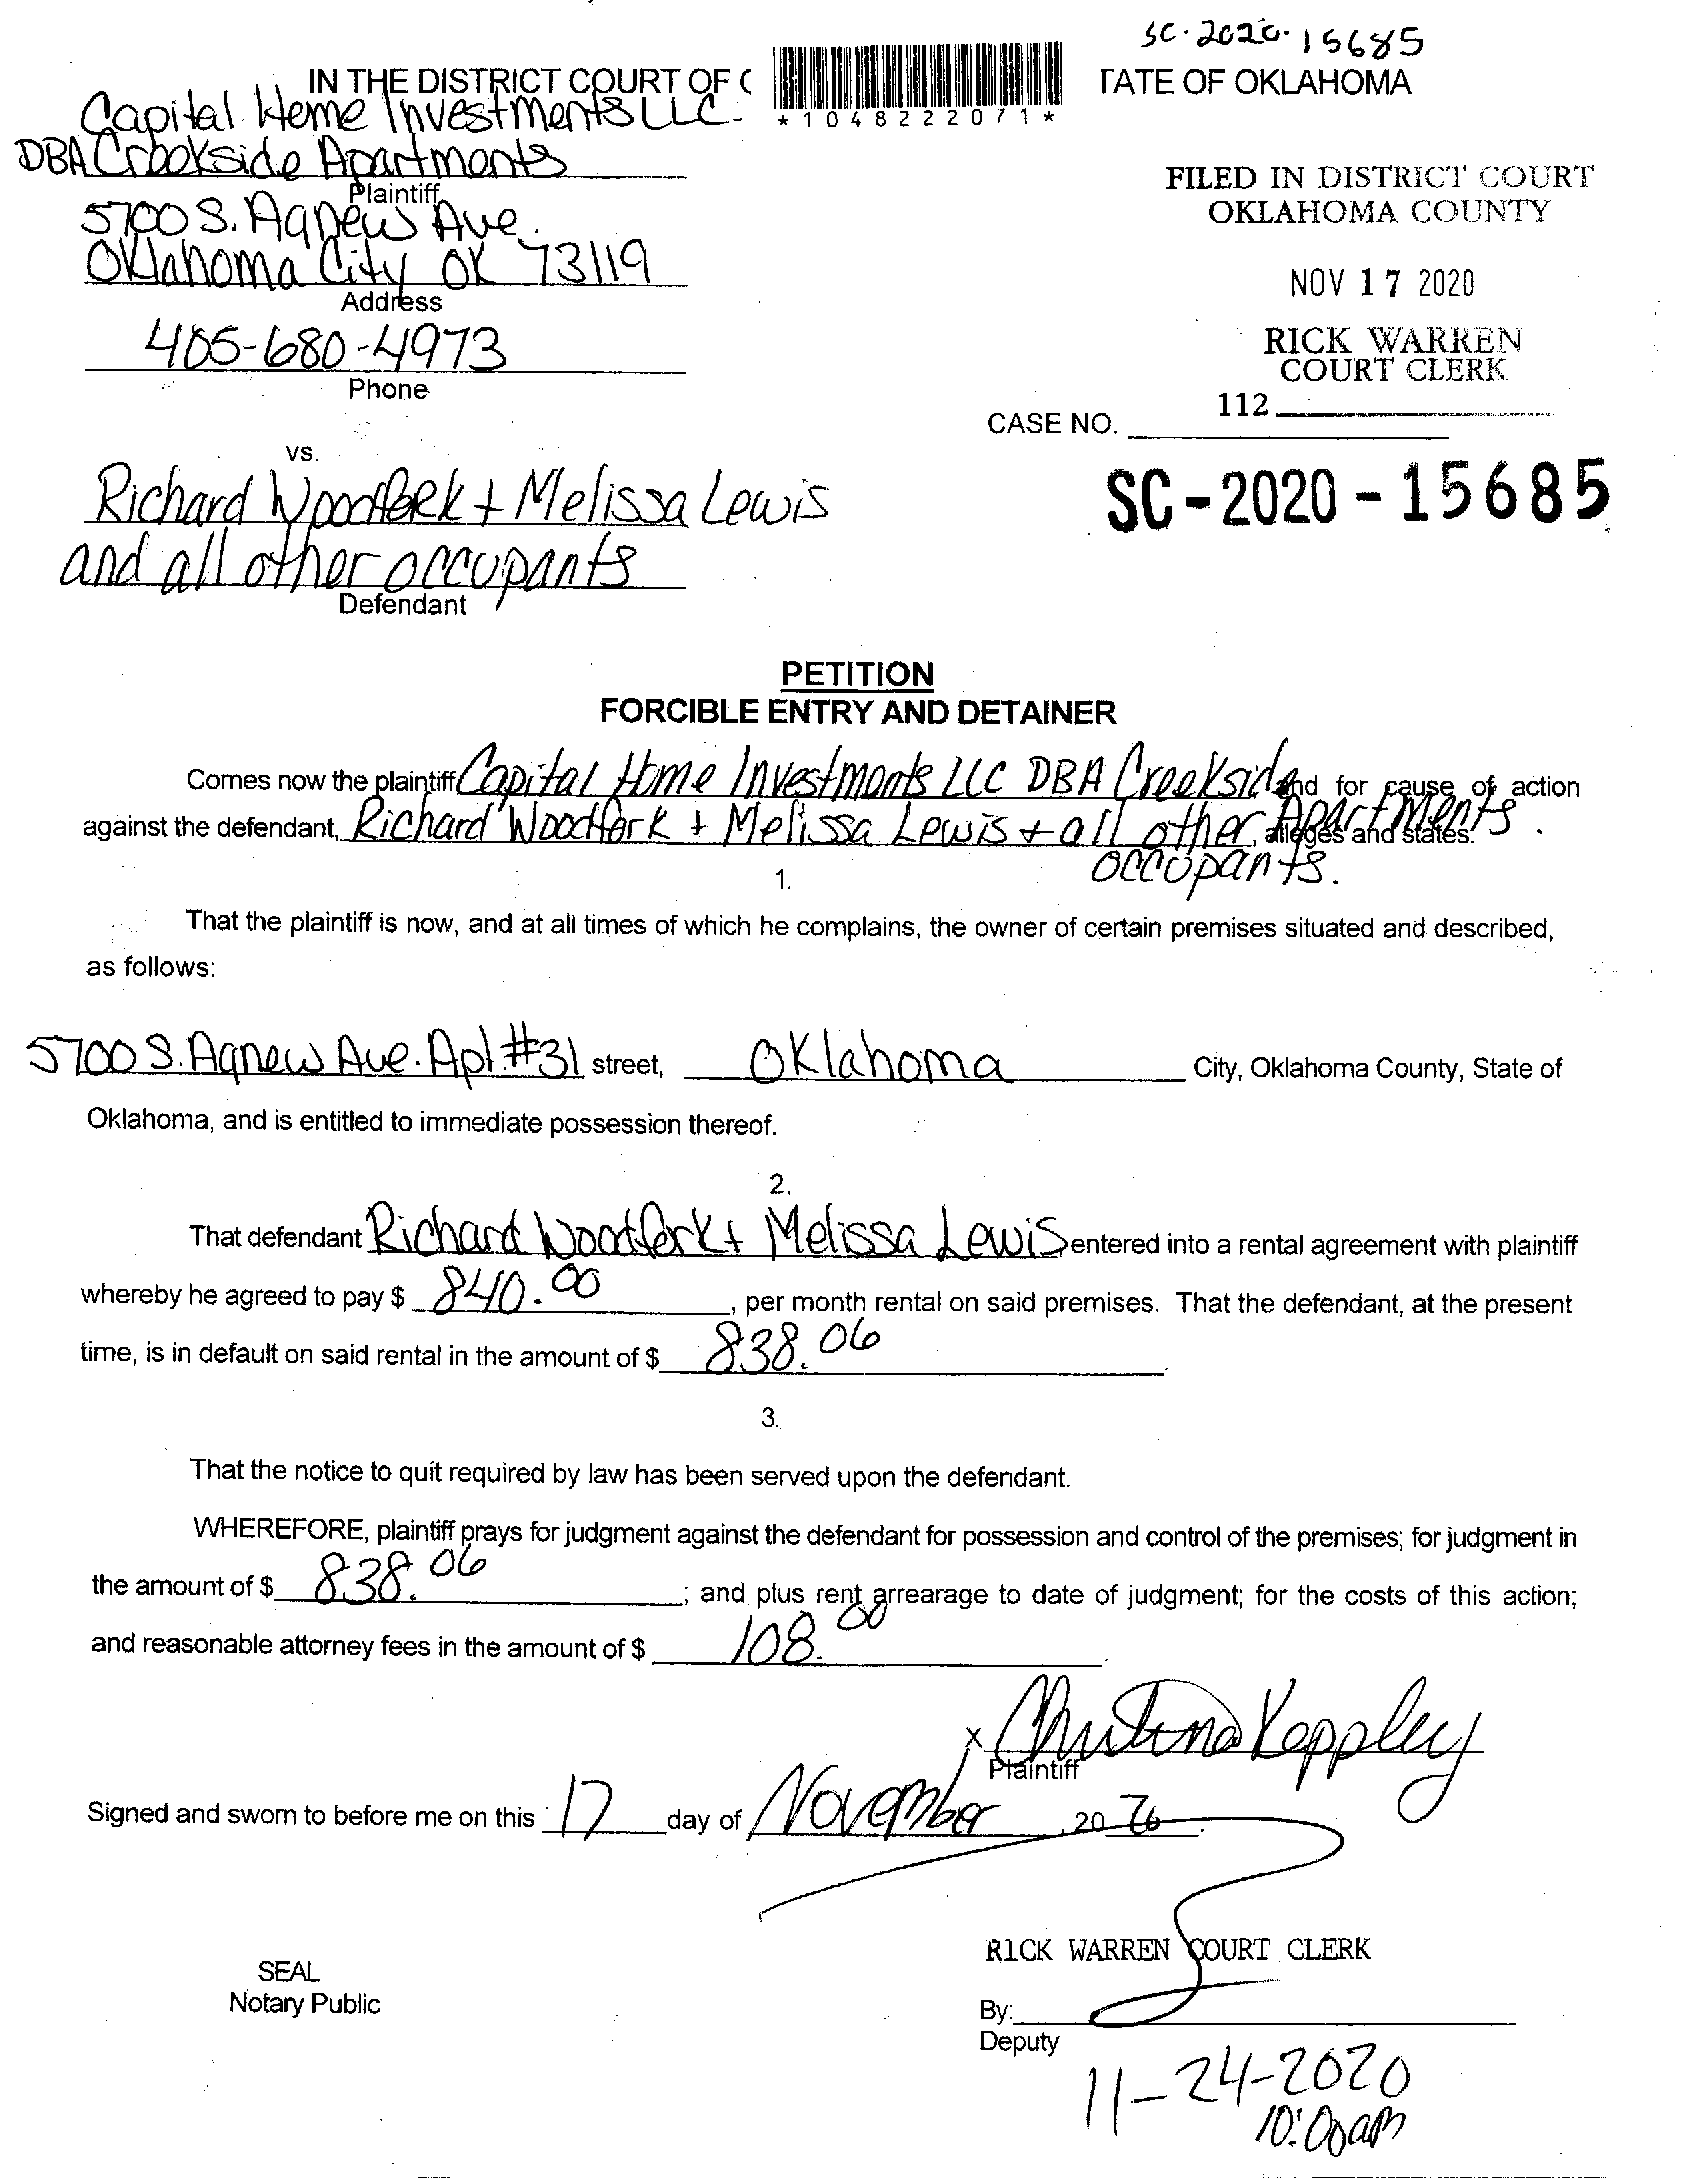 SC-2020-15685
IN THE DISTRICT COURT OF TATE OF OKLAHOMA
*1048222071*
Capital Home Investments LLC
DBA Creekside Apartments
Plaintiff
5700 S. Agnew Ave.
Oklahoma City OK 73119
Address
405-680-4973
Phone
FILED IN DISTRICT COURT
OKLAHOMA COUNTY
NOV 17 2020
RICK WARREN
COURT CLERK
112
CASE NO.
SC-2020-15685
vs.
Richard Woodfork + Melissa Lewis
and all other occupants
Defendant
PETITION
FORCIBLE ENTRY AND DETAINER
Comes now the plaintiff Capital Home Investments LLC DBA Creekside and for cause of action
Apartments.
against the defendant, Richard Woodfork + Melissa Lewis + all other, alleges and states:
occupants.
1.
That the plaintiff is now, and at all times of which he complains, the owner of certain premises situated and described,
as follows:
5700 S. Agnew Ave. Apt. #31 street, Oklahoma City, Oklahoma County, State of
Oklahoma, and is entitled to immediate possession thereof.
2.
That defendant Richard Woodfork + Melissa Lewis entered into a rental agreement with plaintiff
whereby he agreed to pay $ 840.00, per month rental on said premises. That the defendant, at the present
time, is in default on said rental in the amount of $ 838.06
3.
That the notice to quit required by law has been served upon the defendant.
WHEREFORE, plaintiff prays for judgment against the defendant for possession and control of the premises; for judgment in
the amount of $ 838.06; and plus rent arrearage to date of judgment; for the costs of this action;
and reasonable attorney fees in the amount of $ 108.00
x Christina Keppley
Plaintiff
Signed and sworn to before me on this 17 day of November, 2020.
RICK WARREN COURT CLERK
SEAL
Notary Public
By:
Deputy
11-24-2020
10:00am